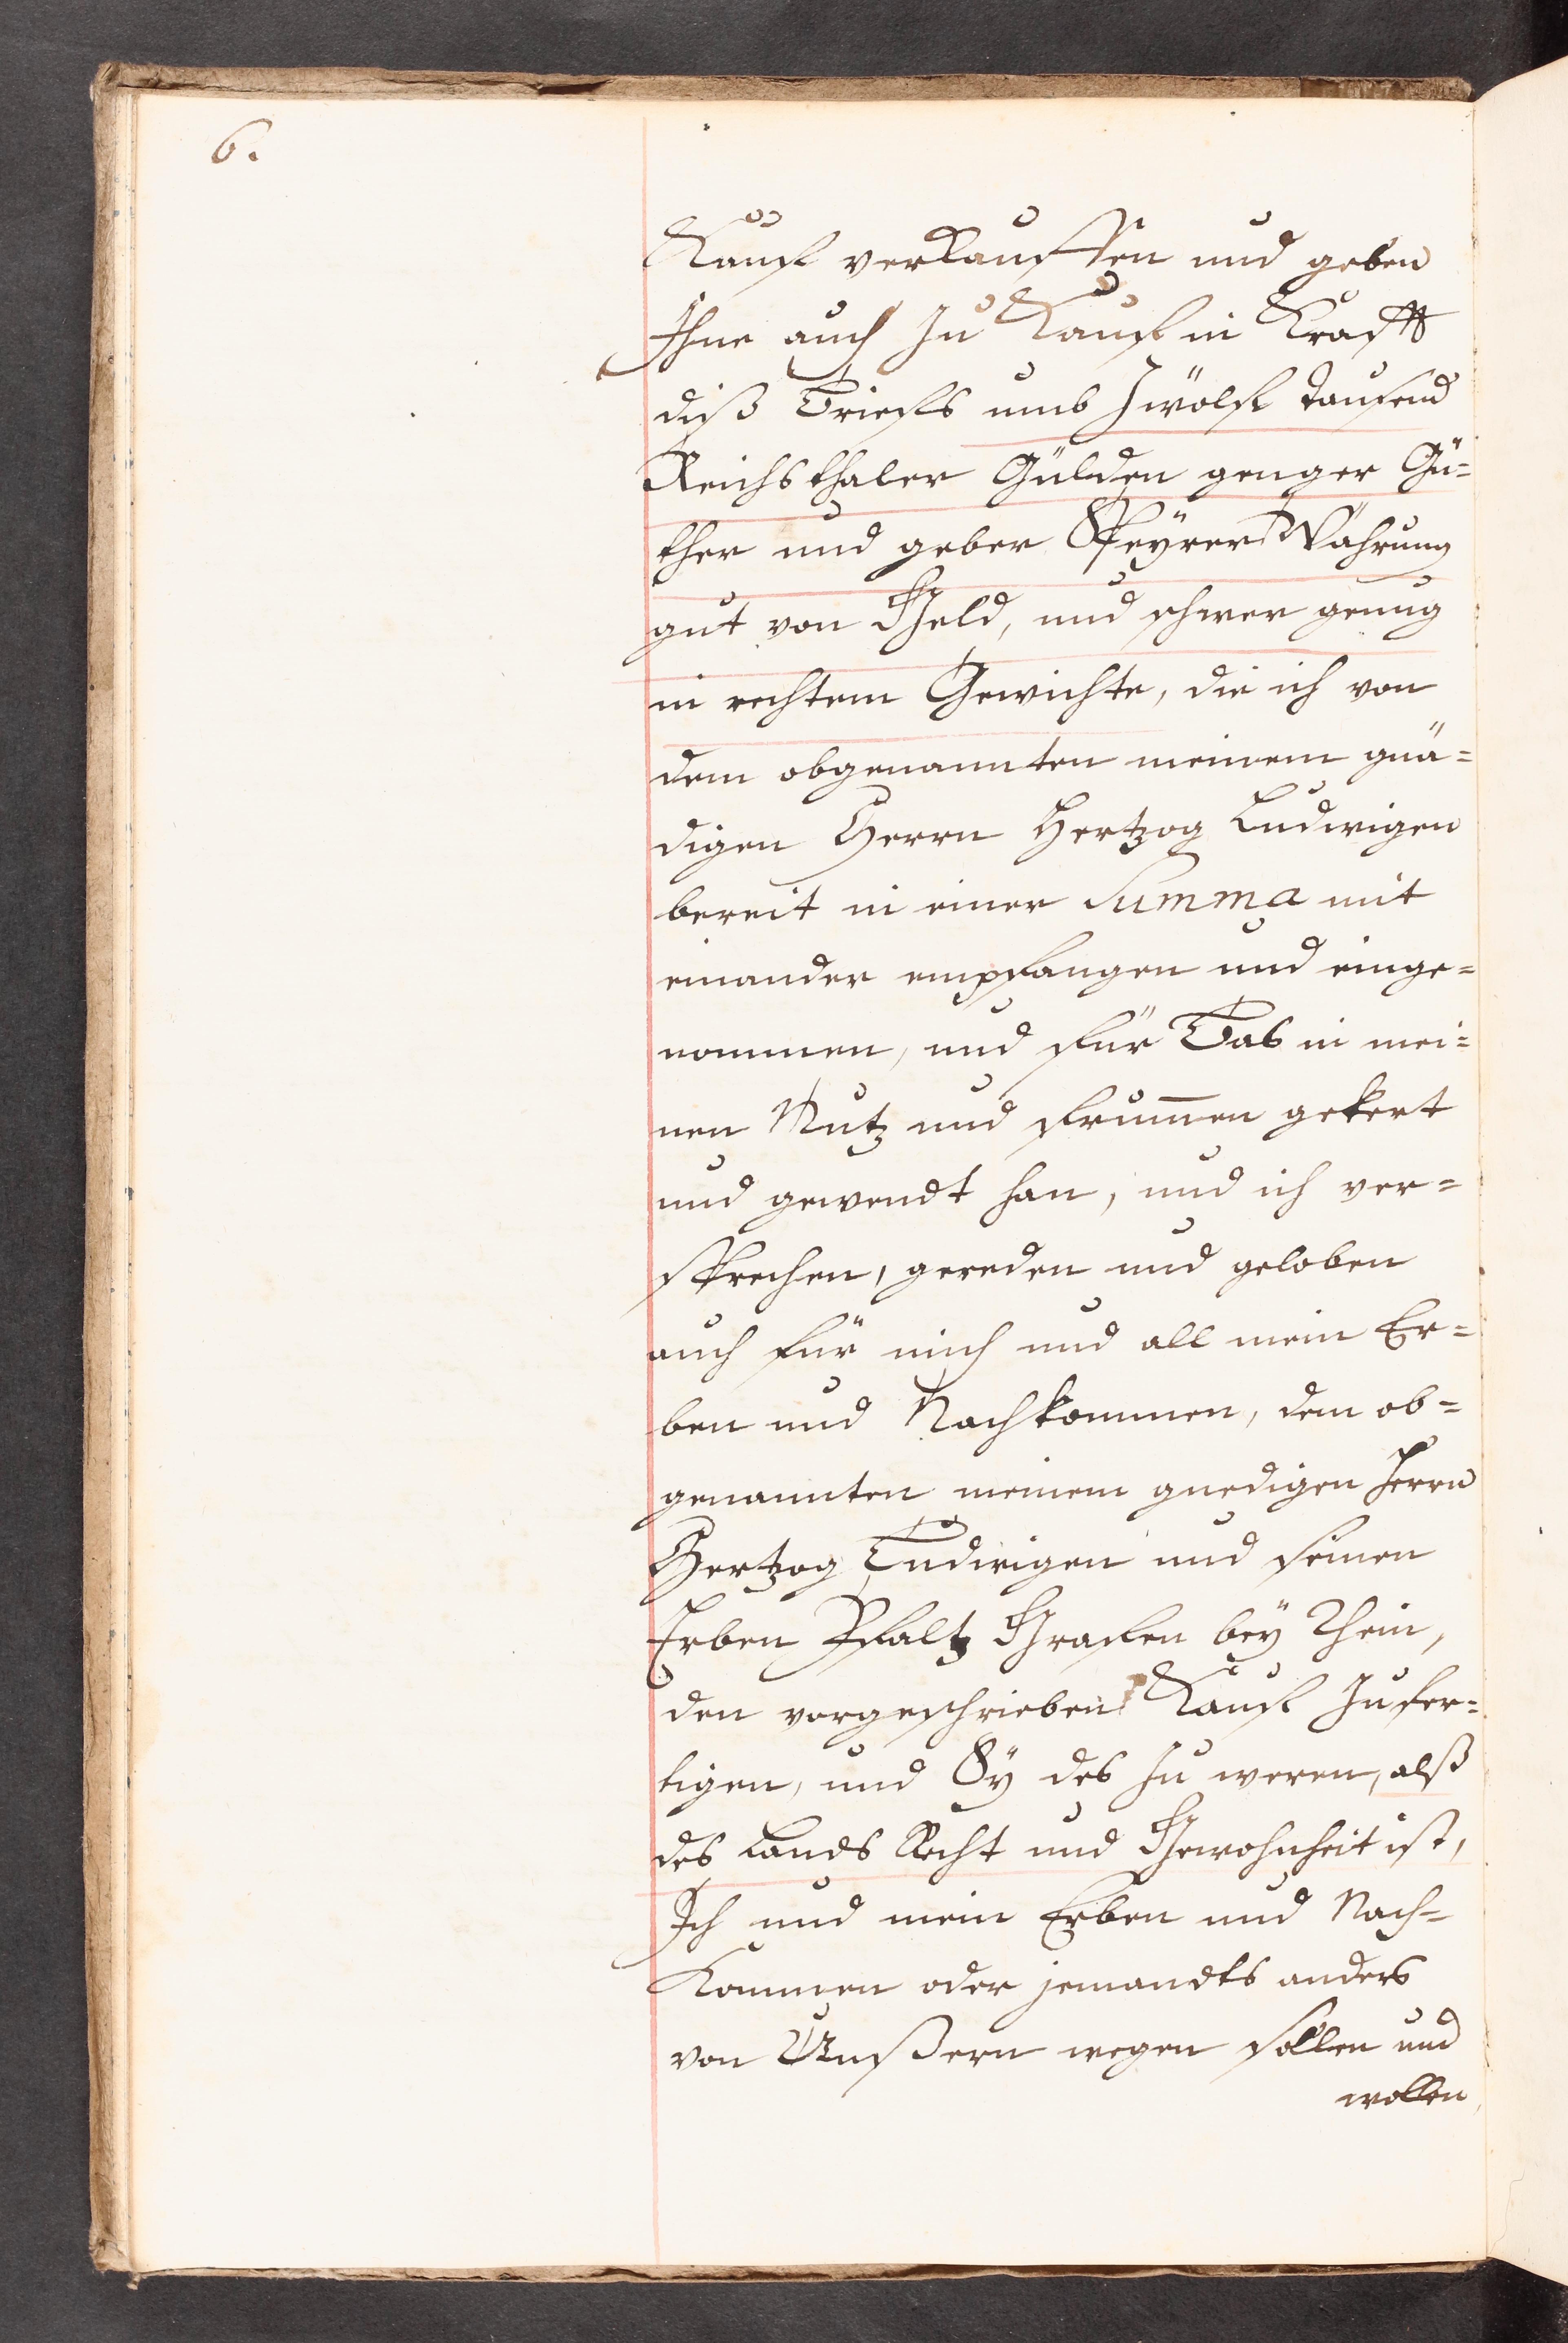 6.
Kauf verkauffen und geben
Ihne auch zu Kauf in Krafft
diß Briefs umb zwölf tausend
Reichsthaler Gülden genger Gü-
ther und geber Speyrer Wahrung
gut von Geld, und schwer genug
in rechtem Gewichte, die ich von
dem obgenannten meinem gnä-
digen Herrn Hertzog Ludwigen
bereit in einer Summa mit
einander empfangen und einge-
nommen, und für Bas in mei-
nen Nutz und frum̅en gekert
und gewendt han, und ich ver-
sprechen, gereden und geloben
auch für mich und all mein Er-
ben und Nachkommen, dem ob-
genannten meinem gnedigen Herrn
Hertzog Ludwigen und seinen
Erben Pfaltz Grafen bey Rhein,
den vorgeschrieben Kauf zufer-
tigen, und Sÿ des zu weren, alß
des Lands Recht und Gewohnheit ist,
Ich und mein Erben und Nach-
kommen oder jemandts anders
von Unßern wegen sollen und
wollen